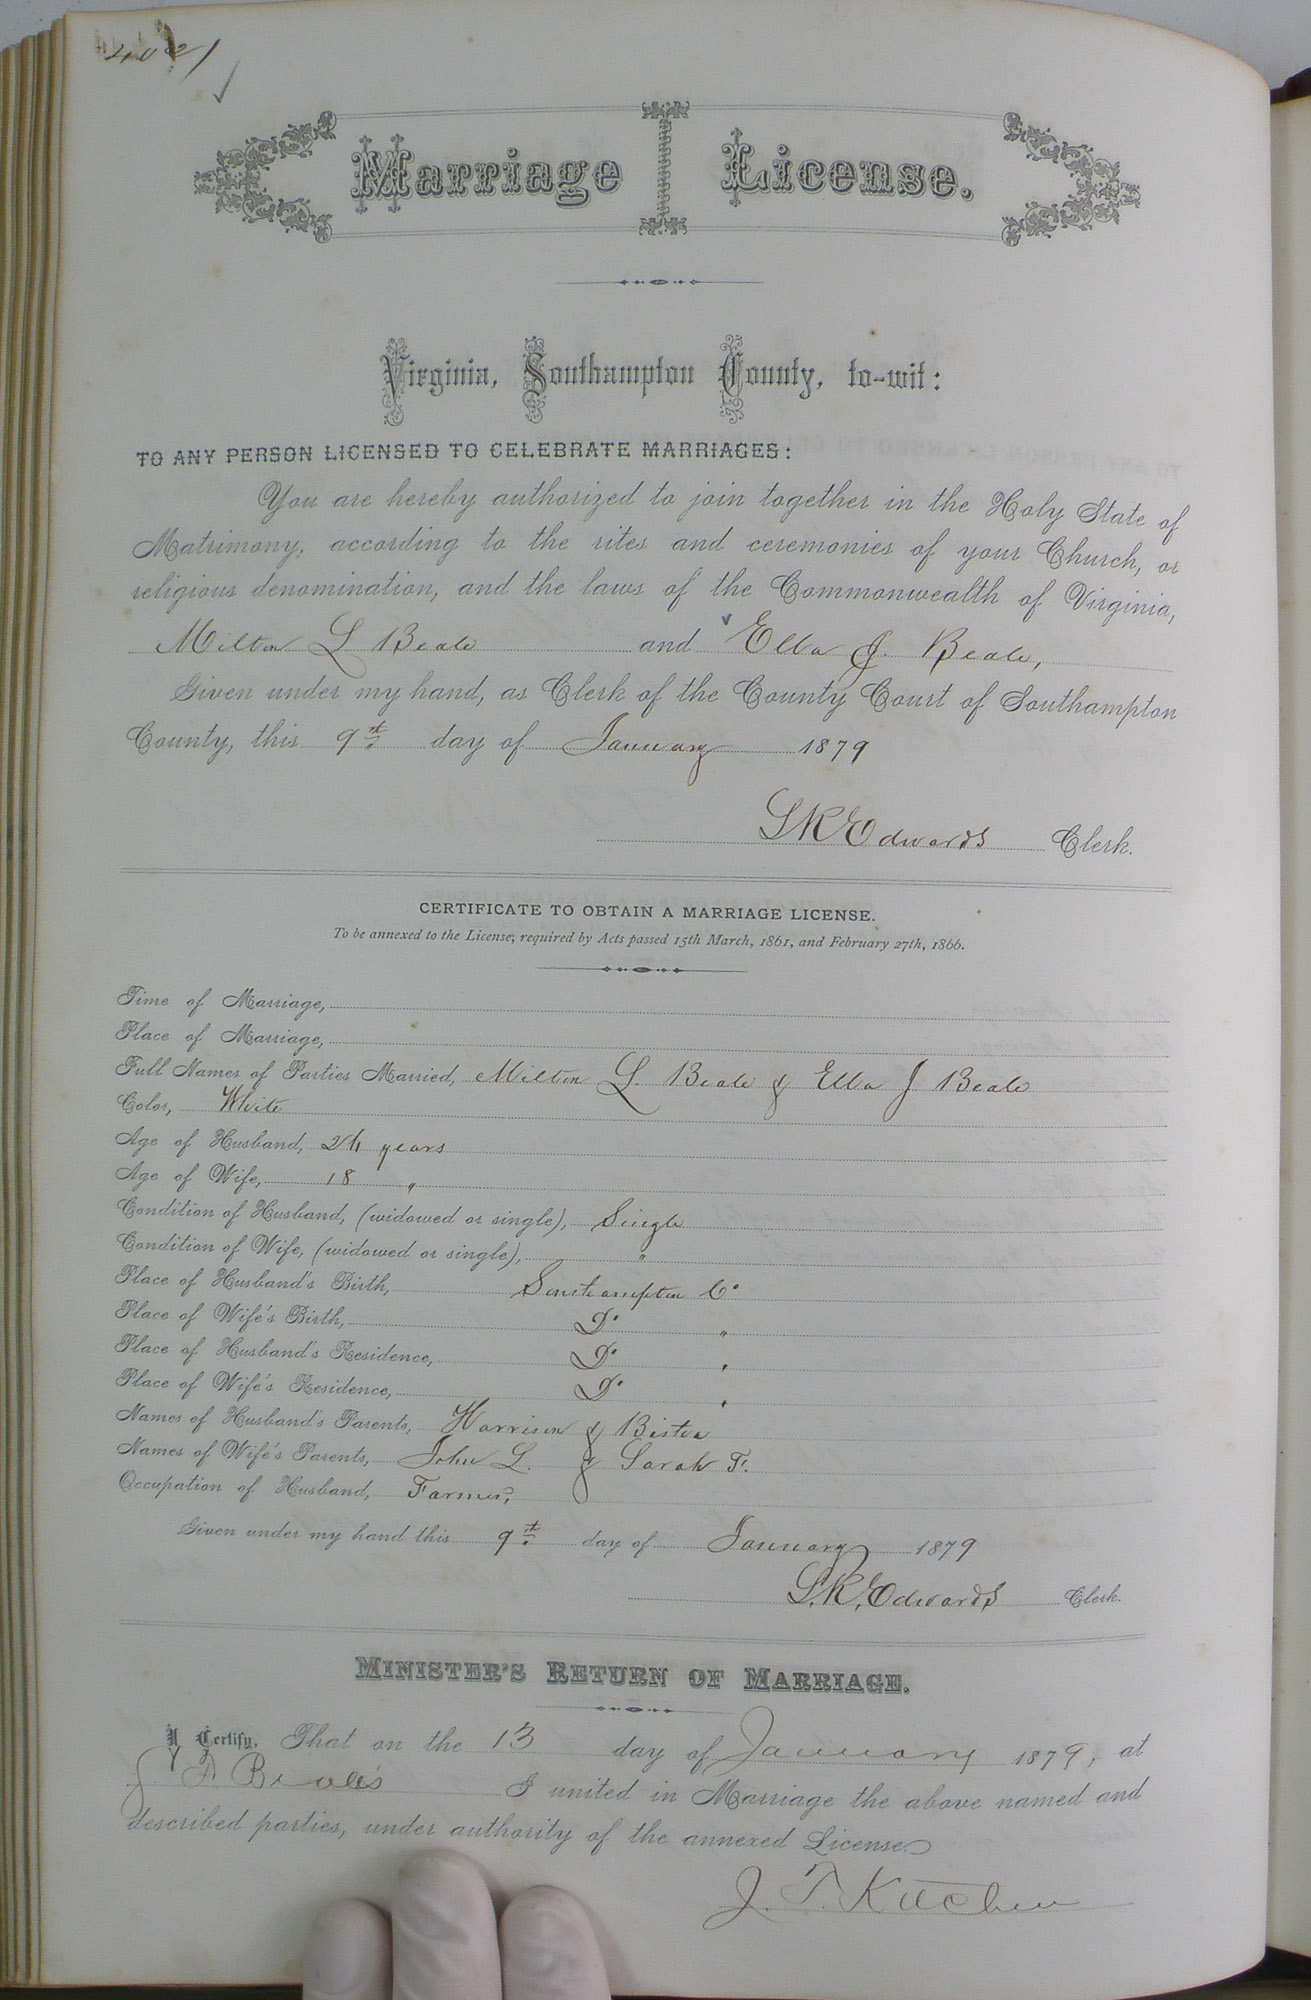 Marriage License.
Virginia, Southampton County, to-wit:
TO ANY PERSON LICENSED TO CELEBRATE MARRIAGES:
You are hereby authorized to join together in the Holy State of
Matrimony, according to the rites and ceremonies of your Church, or
religious denomination, and the laws of the Commonwealth of Virginia,
Milton L Beale and Ella J. Beale,
Given under my hand, as Clerk of the County Court of Southampton
County, this 9th day of January 1879
L R Edwards Clerk.
CERTIFICATE TO OBTAIN A MARRIAGE LICENSE.
To be annexed to the License, required by Acts passed 15th March, 1861, and February 27th, 1866.
Time of Marriage,
Place of Marriage,
Full Names of Parties Married, Milton L. Beale & Ella J Beale
Color, White
Age of Husband, 24 years
Age of Wife, 18 "
Condition of Husband, (widowed or single), Single
Condition of Wife, (widowed or single), "
Place of Husband's Birth, Southampton Co
Place of Wife's Birth, Do "
Place of Husband's Residence, Do "
Place of Wife's Residence, Do "
Names of Husband's Parents, Harrison &
Names of Wife's Parents, John L. & Sarah F.
Occupation of Husband, Farmer,
Given under my hand this 9th day of January 1879
L. R. Edwards Clerk.
MINISTER'S RETURN OF MARRIAGE.
I Certify, That on the 13 day of January 1879, at
Beale's I united in Marriage the above named and
described parties, under authority of the annexed License
J. T. Kitchen